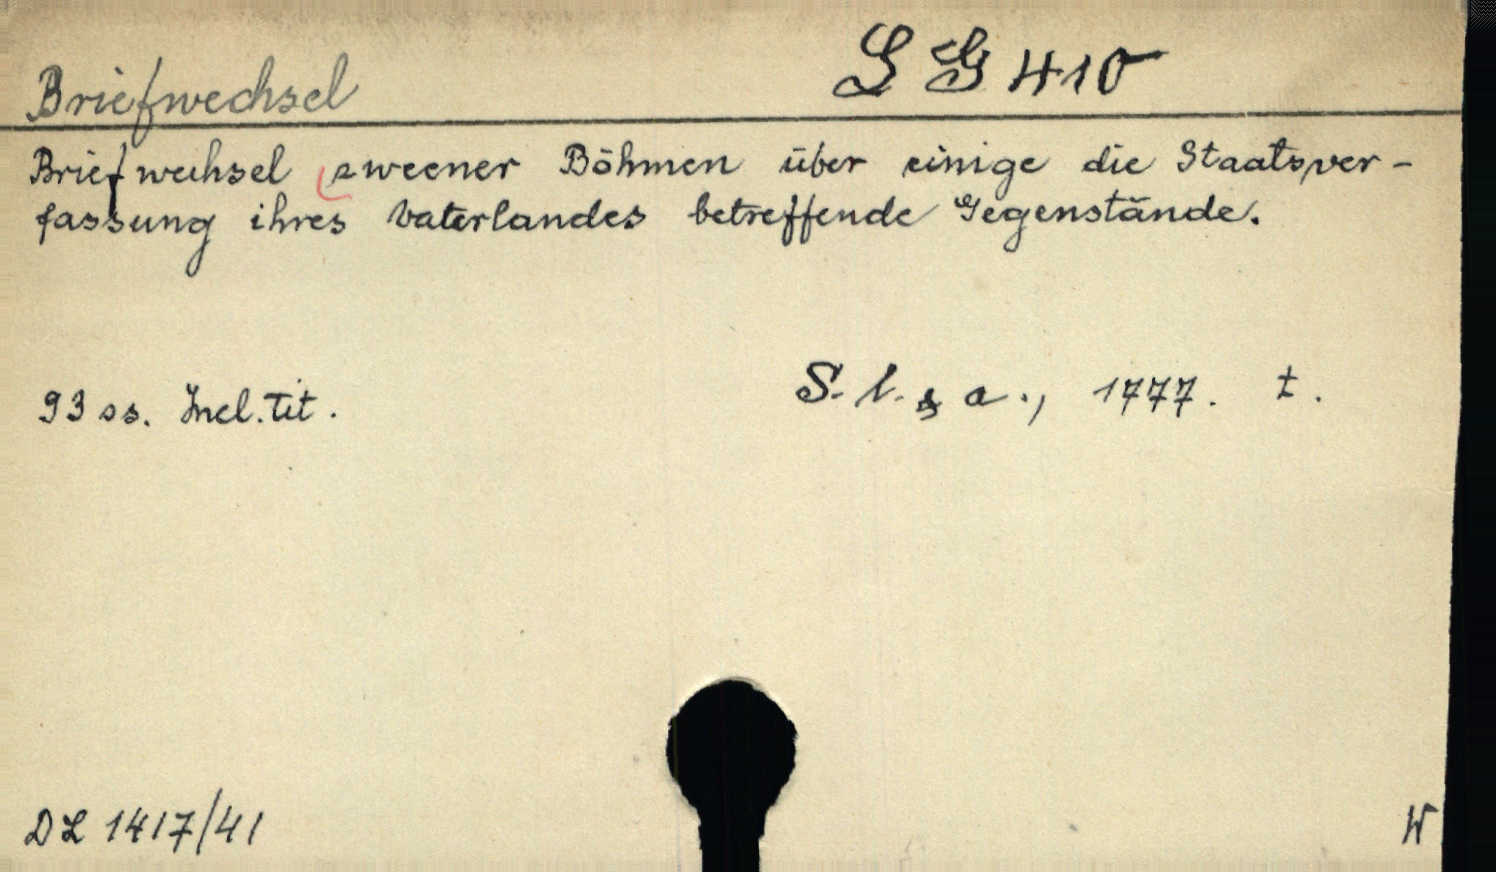 Briefwechsel
S G 410
Briefwechsel zweener Böhmen über einige die Staatsver-
fassung ihres Vaterlandes betreffende Gegenstände.
93 ss. Incl. Tit.
S. l. & a., 1777. ‡.
DL 1417/41
W